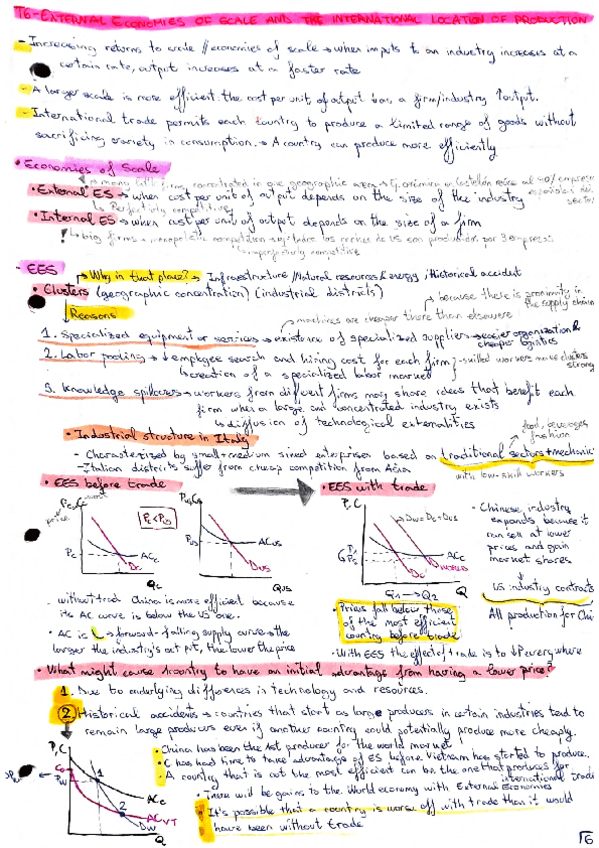 T6-EXTERNAL ECONOMIES OF SCALE AND THE INTERNATIONAL LOCATION OF PRODUCTION
- Increasing returns to scale // economies of scale → when inputs to an industry increases at a
certain rate, output increases at a faster rate
- A larger scale is more efficient: the cost per unit of output as a firm/industry ↑output.
- International trade permits each country to produce a limited range of goods without
sacrificing variety in consumption. → A country can produce more efficiently
• Economies of Scale
firms concentrated in one geographic area
• External ES → when cost per unit of output depends on the size of the industry
↳ Perfectly competitive
• Internal ES → when cost per unit of output depends on the size of a firm
↳ big firms → monopolistic competition
imperfectly competitive
- EES
→ Why in that place? → Infraestructure / Natural resources & energy, / Historical accident
• Clusters (geographic concentration) (industrial districts)
because there is proximity in the supply chain
Reasons
machines are cheaper there than elsewhere
1. Specialized equipment or services → existence of specialized suppliers → easier organization & cheaper logistics
2. Labor pooling → ↓ employee search and hiring cost for each firm → skilled workers make clusters strong
↳ creation of a specialized labor market
3. Knowledge spillovers → workers from different firms may share ideas that benefit each
firm when a large and concentrated industry exists
↳ diffusion of technological externalities
food, beverages fashion
• Industrial structure in Italy
- Characterized by small-medium sized enterprises based on traditional sectors + mechanic
- Italian districts suffer from cheap competition from Asia
with low-skill workers
• EES before trade
• EES with trade
price
Pc, Cc
Pc < Pus
Pc
ACc
Dc
Qc
Pus, Cus
Pus
ACus
Dus
Qus
P, C
Dw = Dc + Dus
P2
ACc
Dc
DWORLD
Q1 → Q2
- Chinese industry
expands because it
can sell at lower
prices and gain
market shares
US industry contracts
All production for Chi
- without trade China is more efficient because
its AC curve is below the US one.
• AC is forward-falling supply curve → the
larger the industry's output, the lower the price
• Prices fall below those
of the most efficient
country before trade
• With EES the effect of trade is to ↓P everywhere
• What might cause 1 country to have an initial advantage from having a lower price?
1. Due to underlying differences in technology and resources.
2. Historical accidents → countries that start as large producers in certain industries tend to
remain large producers even if another country could potentially produce more cheaply.
P, C
Co
Pw
1
2
ACc
ACVT
Dw
Q
• China has been the 1st producer for the world market
• C has had time to take advantage of ES before Vietnam has started to produce.
• A country that is not the most efficient can be the one that produces for
international trade
• There will be gains to the World economy with External Economies
It's possible that a country is worse off with trade than it would
have been without trade
T6